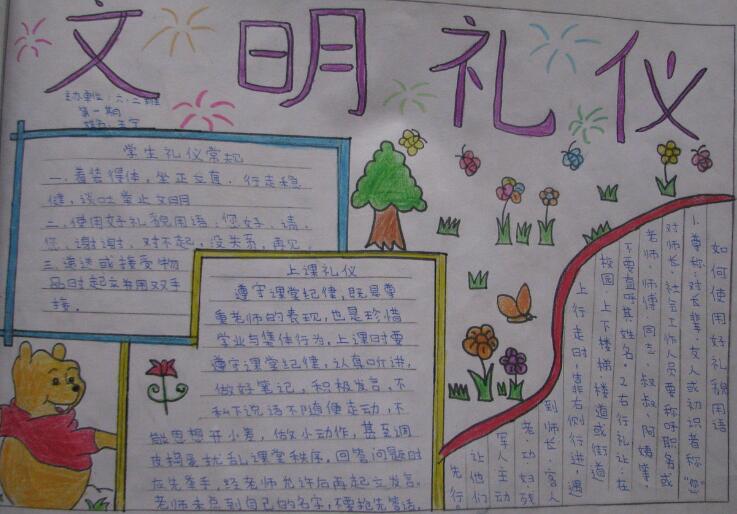 文明礼仪
主办单位:六.二班
第一期
学生礼仪常规
一.着装得体,坐正立直.行走稳
健,谈吐举止文明
二.使用好礼貌用语:您好、请、
您、谢谢、对不起、没关系、再见.
三.递送或接受物
品时起立并用双手
接。
上课礼仪
遵守课堂纪律,既是尊
重老师的表现,也是珍惜
学业与集体行为,上课时要
遵守课堂纪律,认真听讲,
做好笔记,积极发言,不
私下说话不随便走动,不
思想开小差,做小动作,甚至调
皮捣蛋扰乱课堂秩序,回答问题时
应先举手,经老师允许后再起立发言.
老师未点到自己的名字,不要抢先答话.
如何使用好礼貌用语
1.尊称:对长辈、友人或初识者称“您”
对师长、社会工作人员要称呼职务或
老师、师傅、同志、叔叔、阿姨等,
不要直呼其姓名。2.右行礼让:在
校园、上下楼梯、楼道或街道
上行走时,靠右侧行进,遇
到师长、客人
老、幼、妇、残
军人主动
让他们
先行。